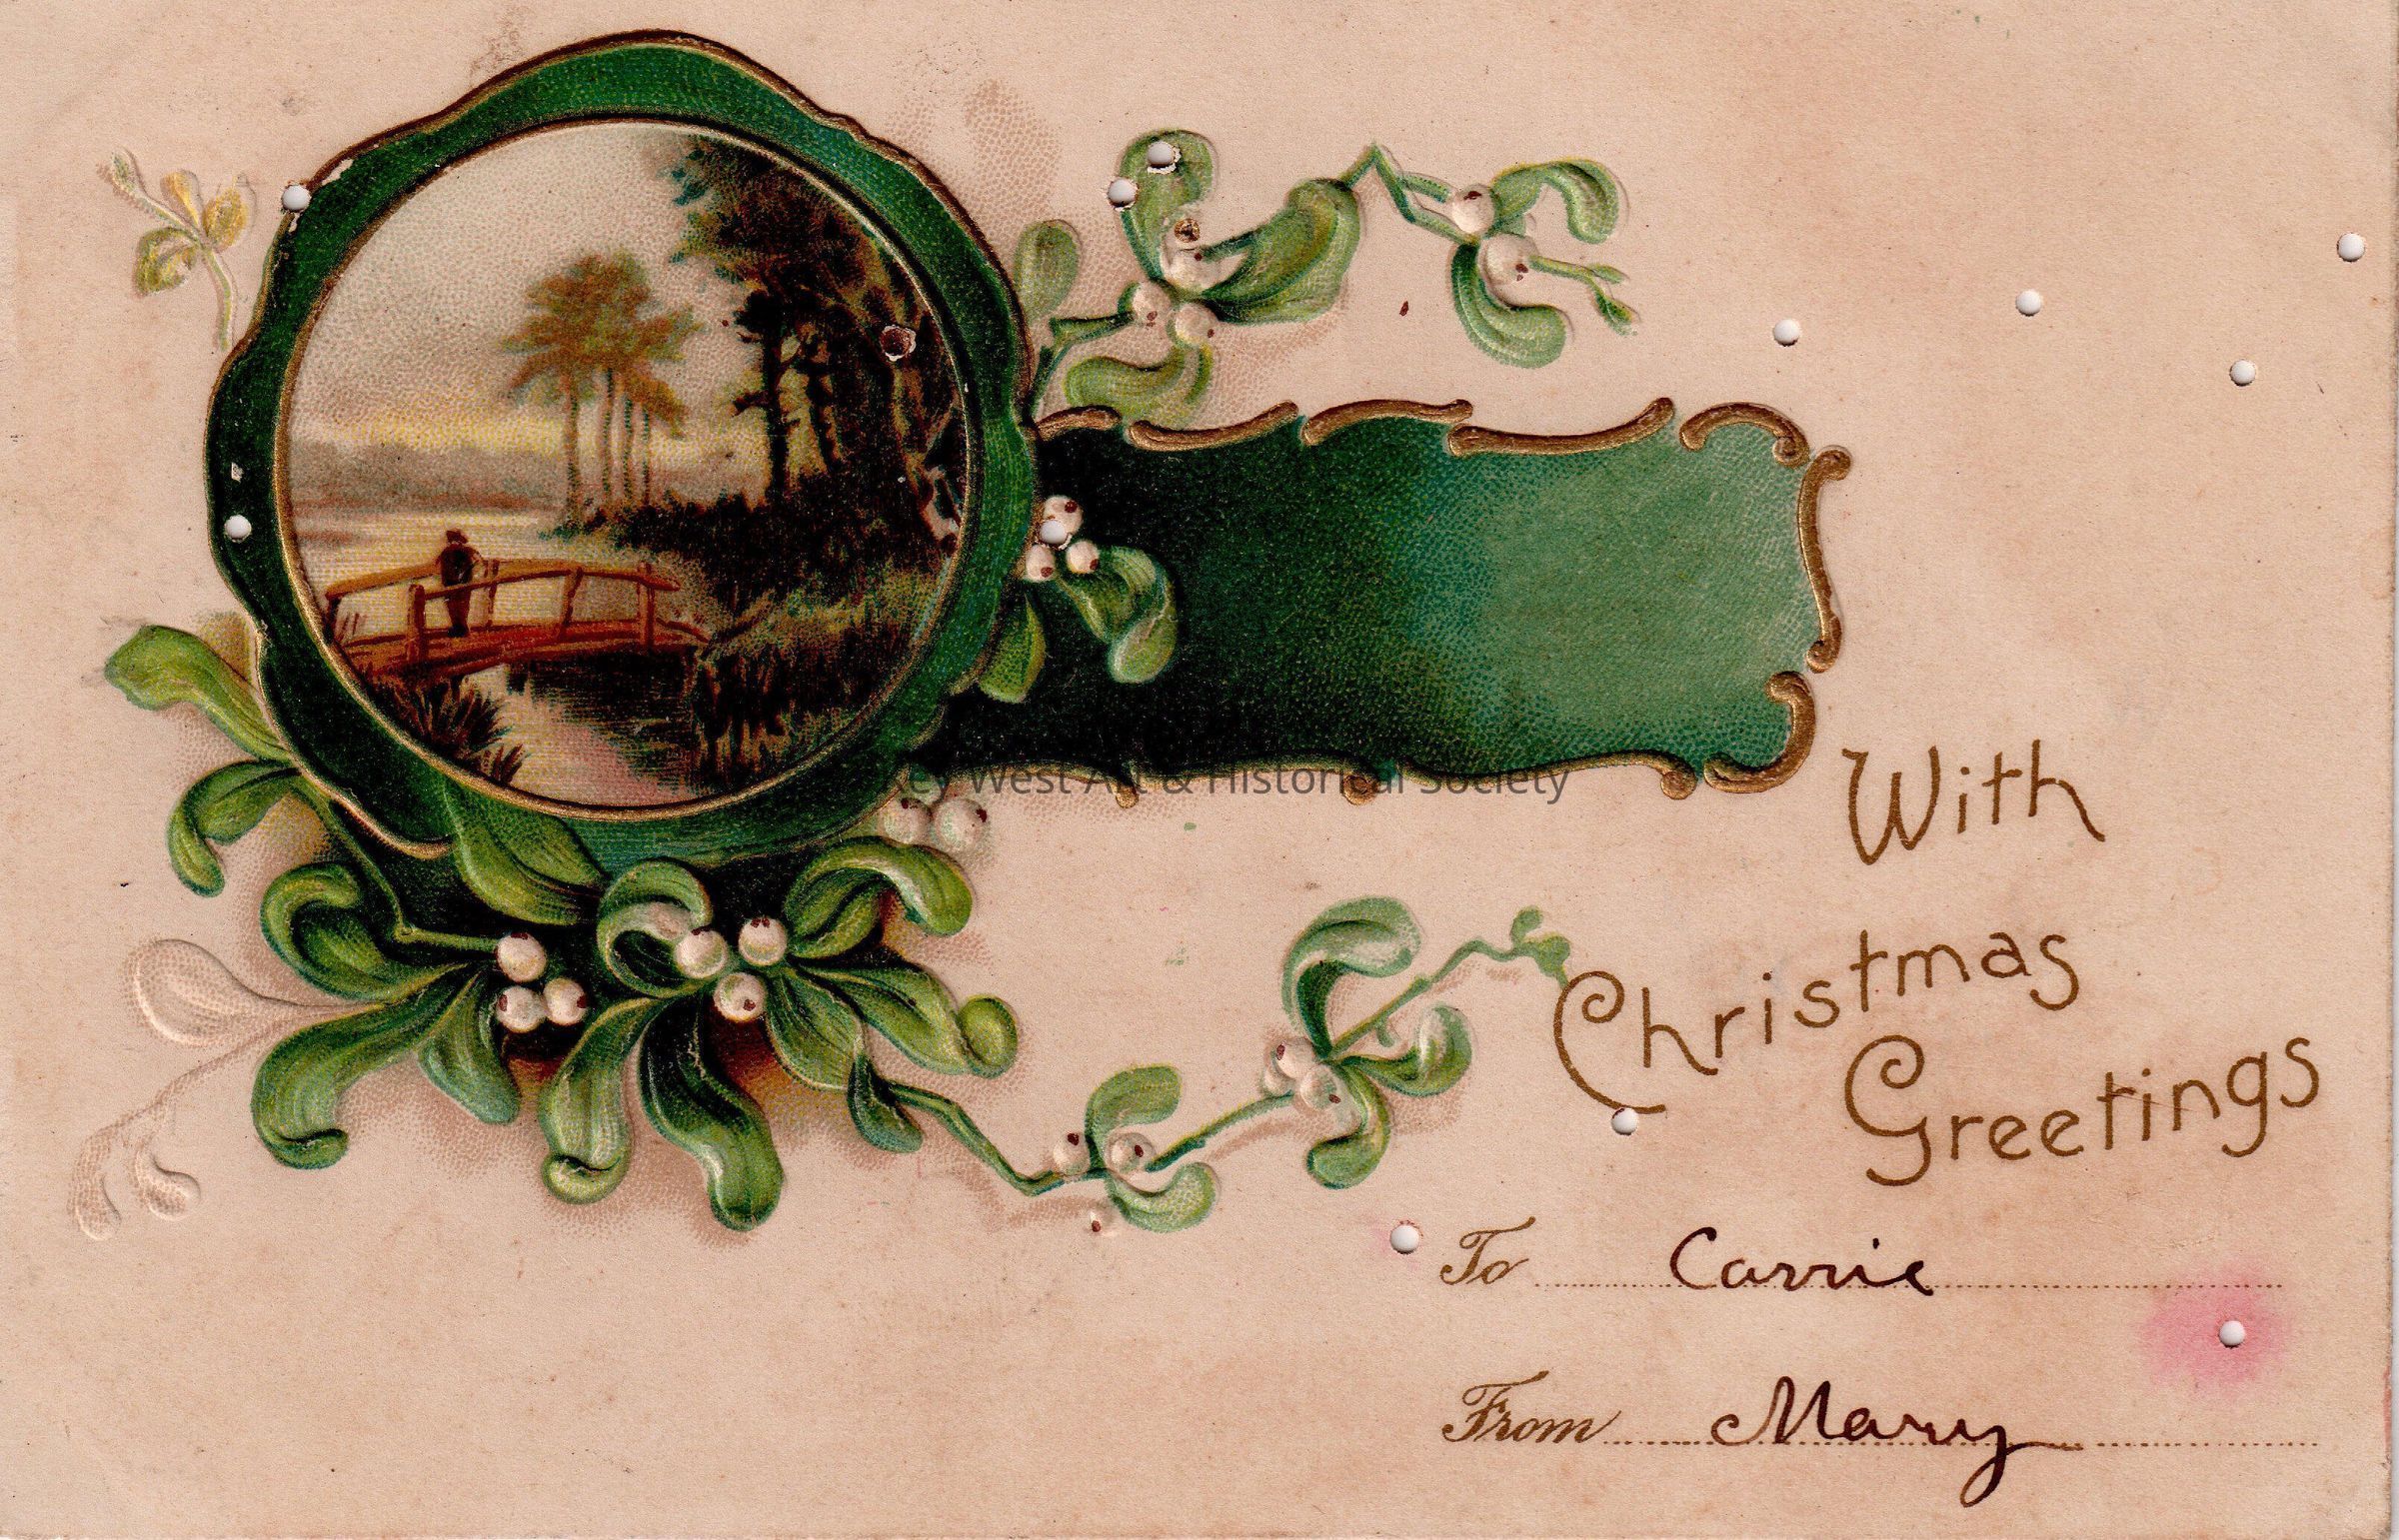 Key West Art & Historical Society
With
Christmas
Greetings
To Carrie
From Mary